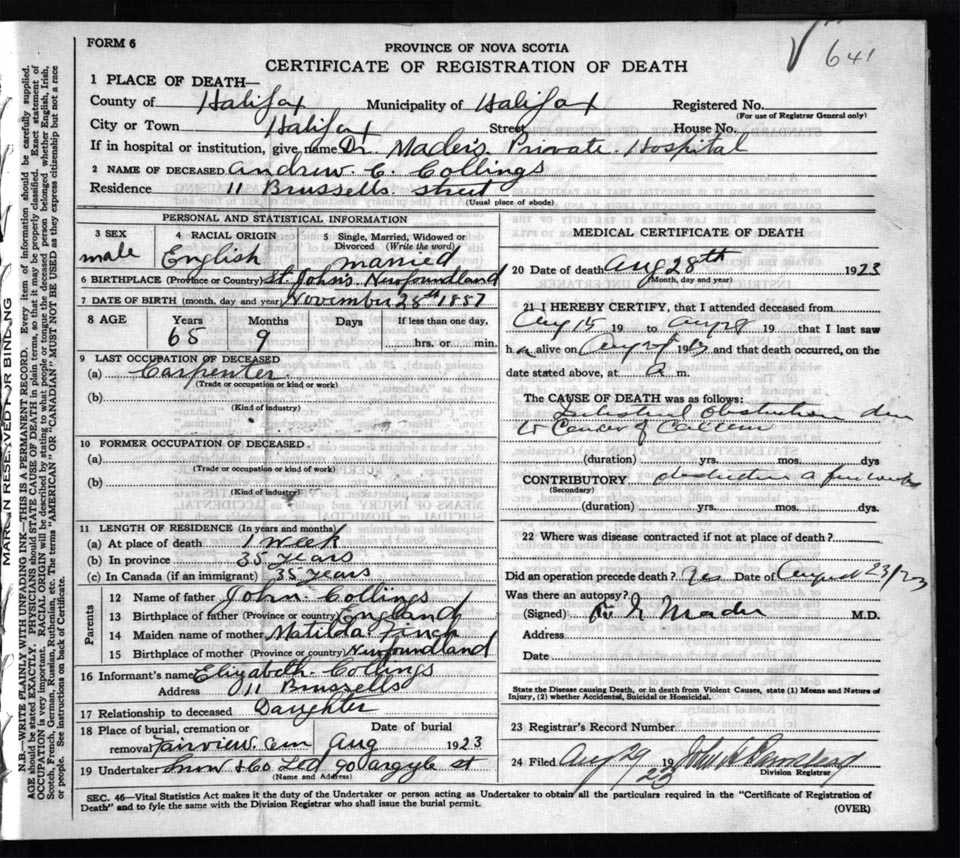 641
FORM 6
PROVINCE OF NOVA SCOTIA
CERTIFICATE OF REGISTRATION OF DEATH
1 PLACE OF DEATH—
County of Halifax Municipality of Halifax Registered No.
(For use of Registrar General only)
City or Town Halifax Street House No.
If in hospital or institution, give name Dr. Mader's Private Hospital
2 NAME OF DECEASED Andrew C. Collings
Residence 11 Brussells street
(Usual place of abode)
PERSONAL AND STATISTICAL INFORMATION
3 SEX male
4 RACIAL ORIGIN English
5 Single, Married, Widowed or Divorced (Write the word) married
6 BIRTHPLACE (Province or Country) St. John's Newfoundland
7 DATE OF BIRTH (month, day and year) November 28th 1857
8 AGE Years Months Days If less than one day,
65 9 hrs. or min.
9 LAST OCCUPATION OF DECEASED
(a) Carpenter
(Trade or occupation or kind or work)
(b)
(Kind of industry)
10 FORMER OCCUPATION OF DECEASED
(a)
(Trade or occupation or kind of work)
(b)
(Kind of industry)
11 LENGTH OF RESIDENCE (In years and months)
(a) At place of death 1 week
(b) In province 35 years
(c) In Canada (if an immigrant) 35 years
Parents
12 Name of father John Collings
13 Birthplace of father (Province or country) England
14 Maiden name of mother Matilda Finch
15 Birthplace of mother (Province or country) Newfoundland
16 Informant's name Elizabeth Collings
Address 11 Brussells
17 Relationship to deceased Daughter
18 Place of burial, cremation or removal Fairview Cem Date of burial Aug 1923
19 Undertaker Snow & Co Ltd 90 Argyle st
(Name and Address)
MEDICAL CERTIFICATE OF DEATH
20 Date of death Aug 28th 1923
(Month, day and year)
21 I HEREBY CERTIFY, that I attended deceased from
Aug 15 19 to Aug 28 19 that I last saw
h alive on 19 and that death occurred, on the
date stated above, at a m.
The CAUSE OF DEATH was as follows:
Intestinal obstruction due
to Cancer of Caecum
(duration) yrs. mos. dys
CONTRIBUTORY obstruction a few weeks
(Secondary)
(duration) yrs. mos. dys.
22 Where was disease contracted if not at place of death?
Did an operation precede death? Yes Date of August 23/23
Was there an autopsy?
(Signed) E Mader M.D.
Address
Date
State the Disease causing Death, or in death from Violent Causes, state (1) Means and Nature of
Injury, (2) whether Accidental, Suicidal or Homicidal.
23 Registrar's Record Number
24 Filed Aug 29 19 23 John
Division Registrar
SEC. 46—Vital Statistics Act makes it the duty of the Undertaker or person acting as Undertaker to obtain all the particulars required in the "Certificate of Registration of
Death" and to fyle the same with the Division Registrar who shall issue the burial permit.
(OVER)
MARGIN RESERVED FOR BINDING
N.B.—WRITE PLAINLY WITH UNFADING INK—THIS IS A PERMANENT RECORD. Every item of information should be carefully supplied.
AGE should be stated EXACTLY. PHYSICIANS should STATE CAUSE OF DEATH in plain terms, so that it may be properly classified. Exact statement of
OCCUPATION is very important. RACIAL ORIGIN will be described by stating to what people or tongue the deceased person belonged whether English, Irish,
Scotch, French, German, Russian, Ruthenian, etc. The terms "AMERICAN" OR "CANADIAN" MUST NOT BE USED as they express citizenship but not a race
or people. See instructions on back of Certificate.